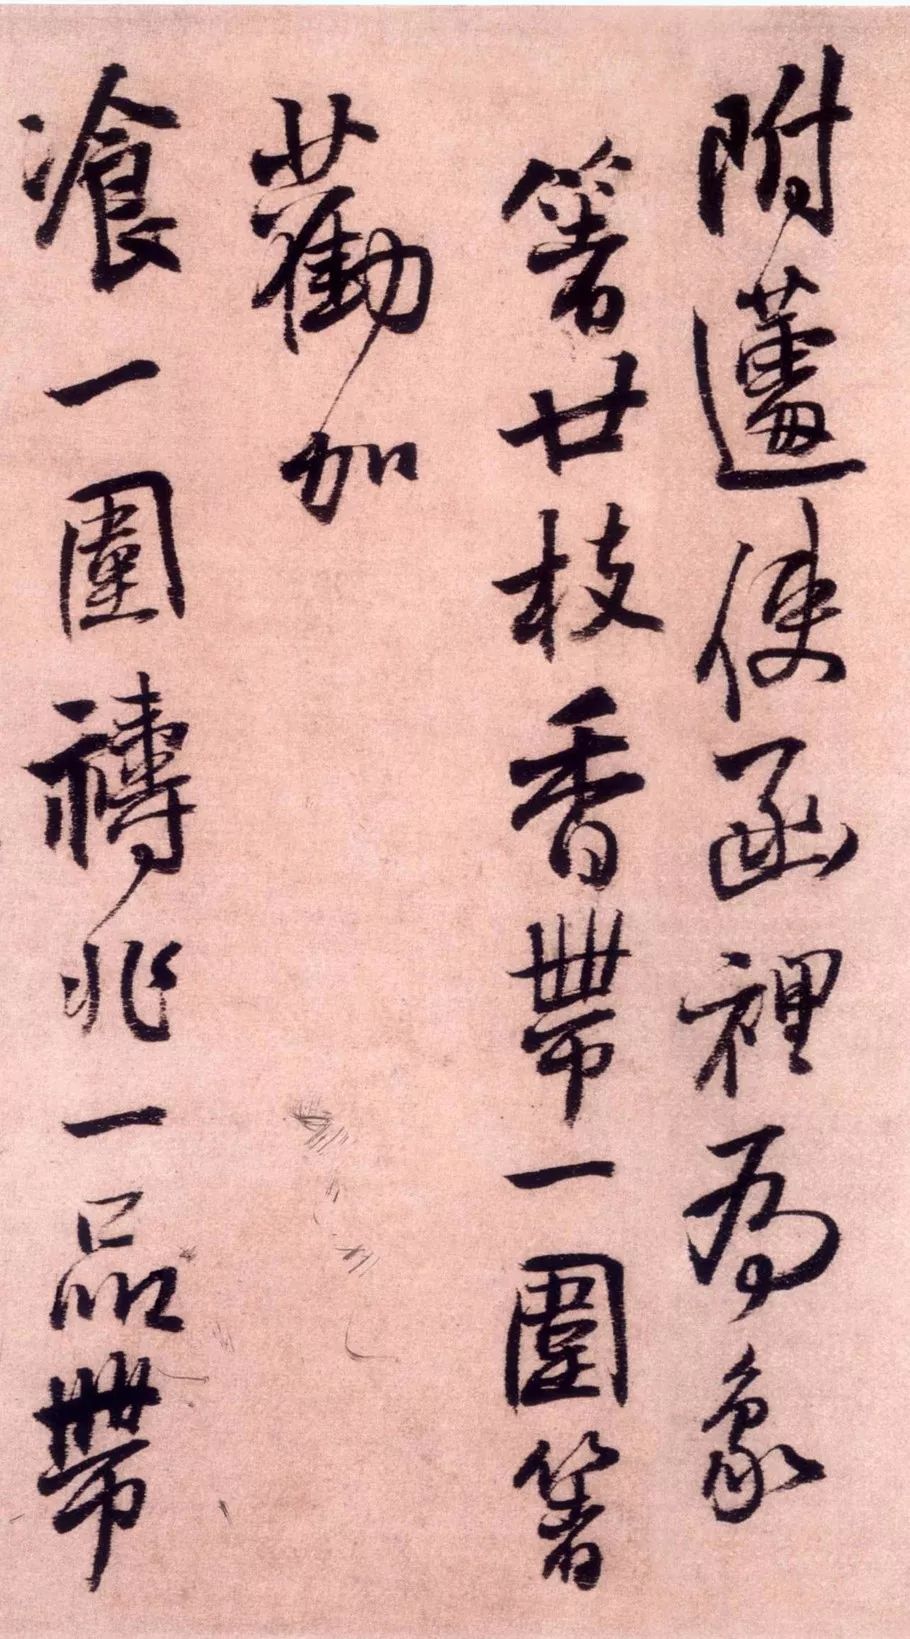 附使函裡為象
箸廿枝香帶一圍箸
勸加
飡一圍禱兆一品帶